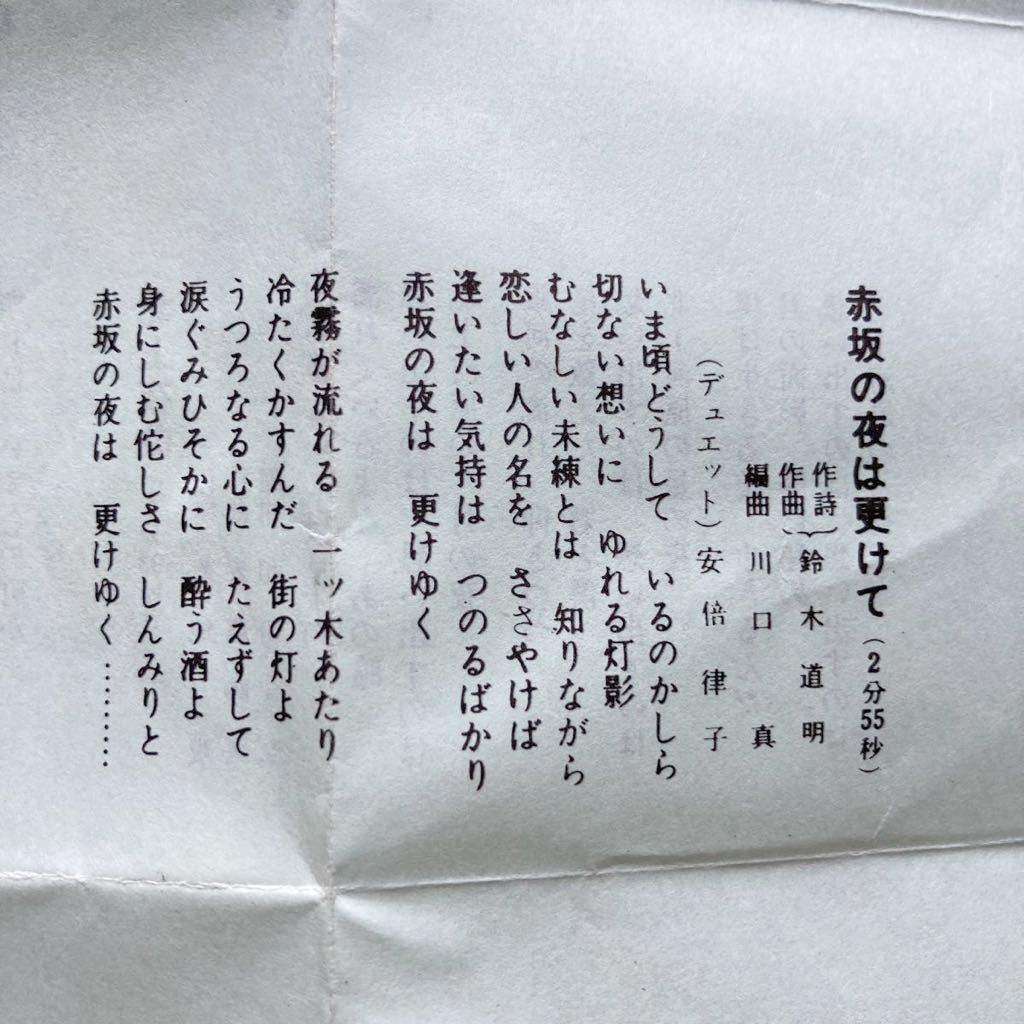 赤坂の夜は更けて(2分55秒)
作詩
作曲}鈴木道明
編曲 川口真
(デュエット)安倍律子
いま頃どうして いるのかしら
切ない想いに ゆれる灯影
むなしい未練とは 知りながら
恋しい人の名を ささやけば
逢いたい気持は つのるばかり
赤坂の夜は 更けゆく
夜霧が流れる 一ッ木あたり
冷たくかすんだ 街の灯よ
うつろなる心に たえずして
涙ぐみひそかに 酔う酒よ
身にしむ侘しさ しんみりと
赤坂の夜は 更けゆく………